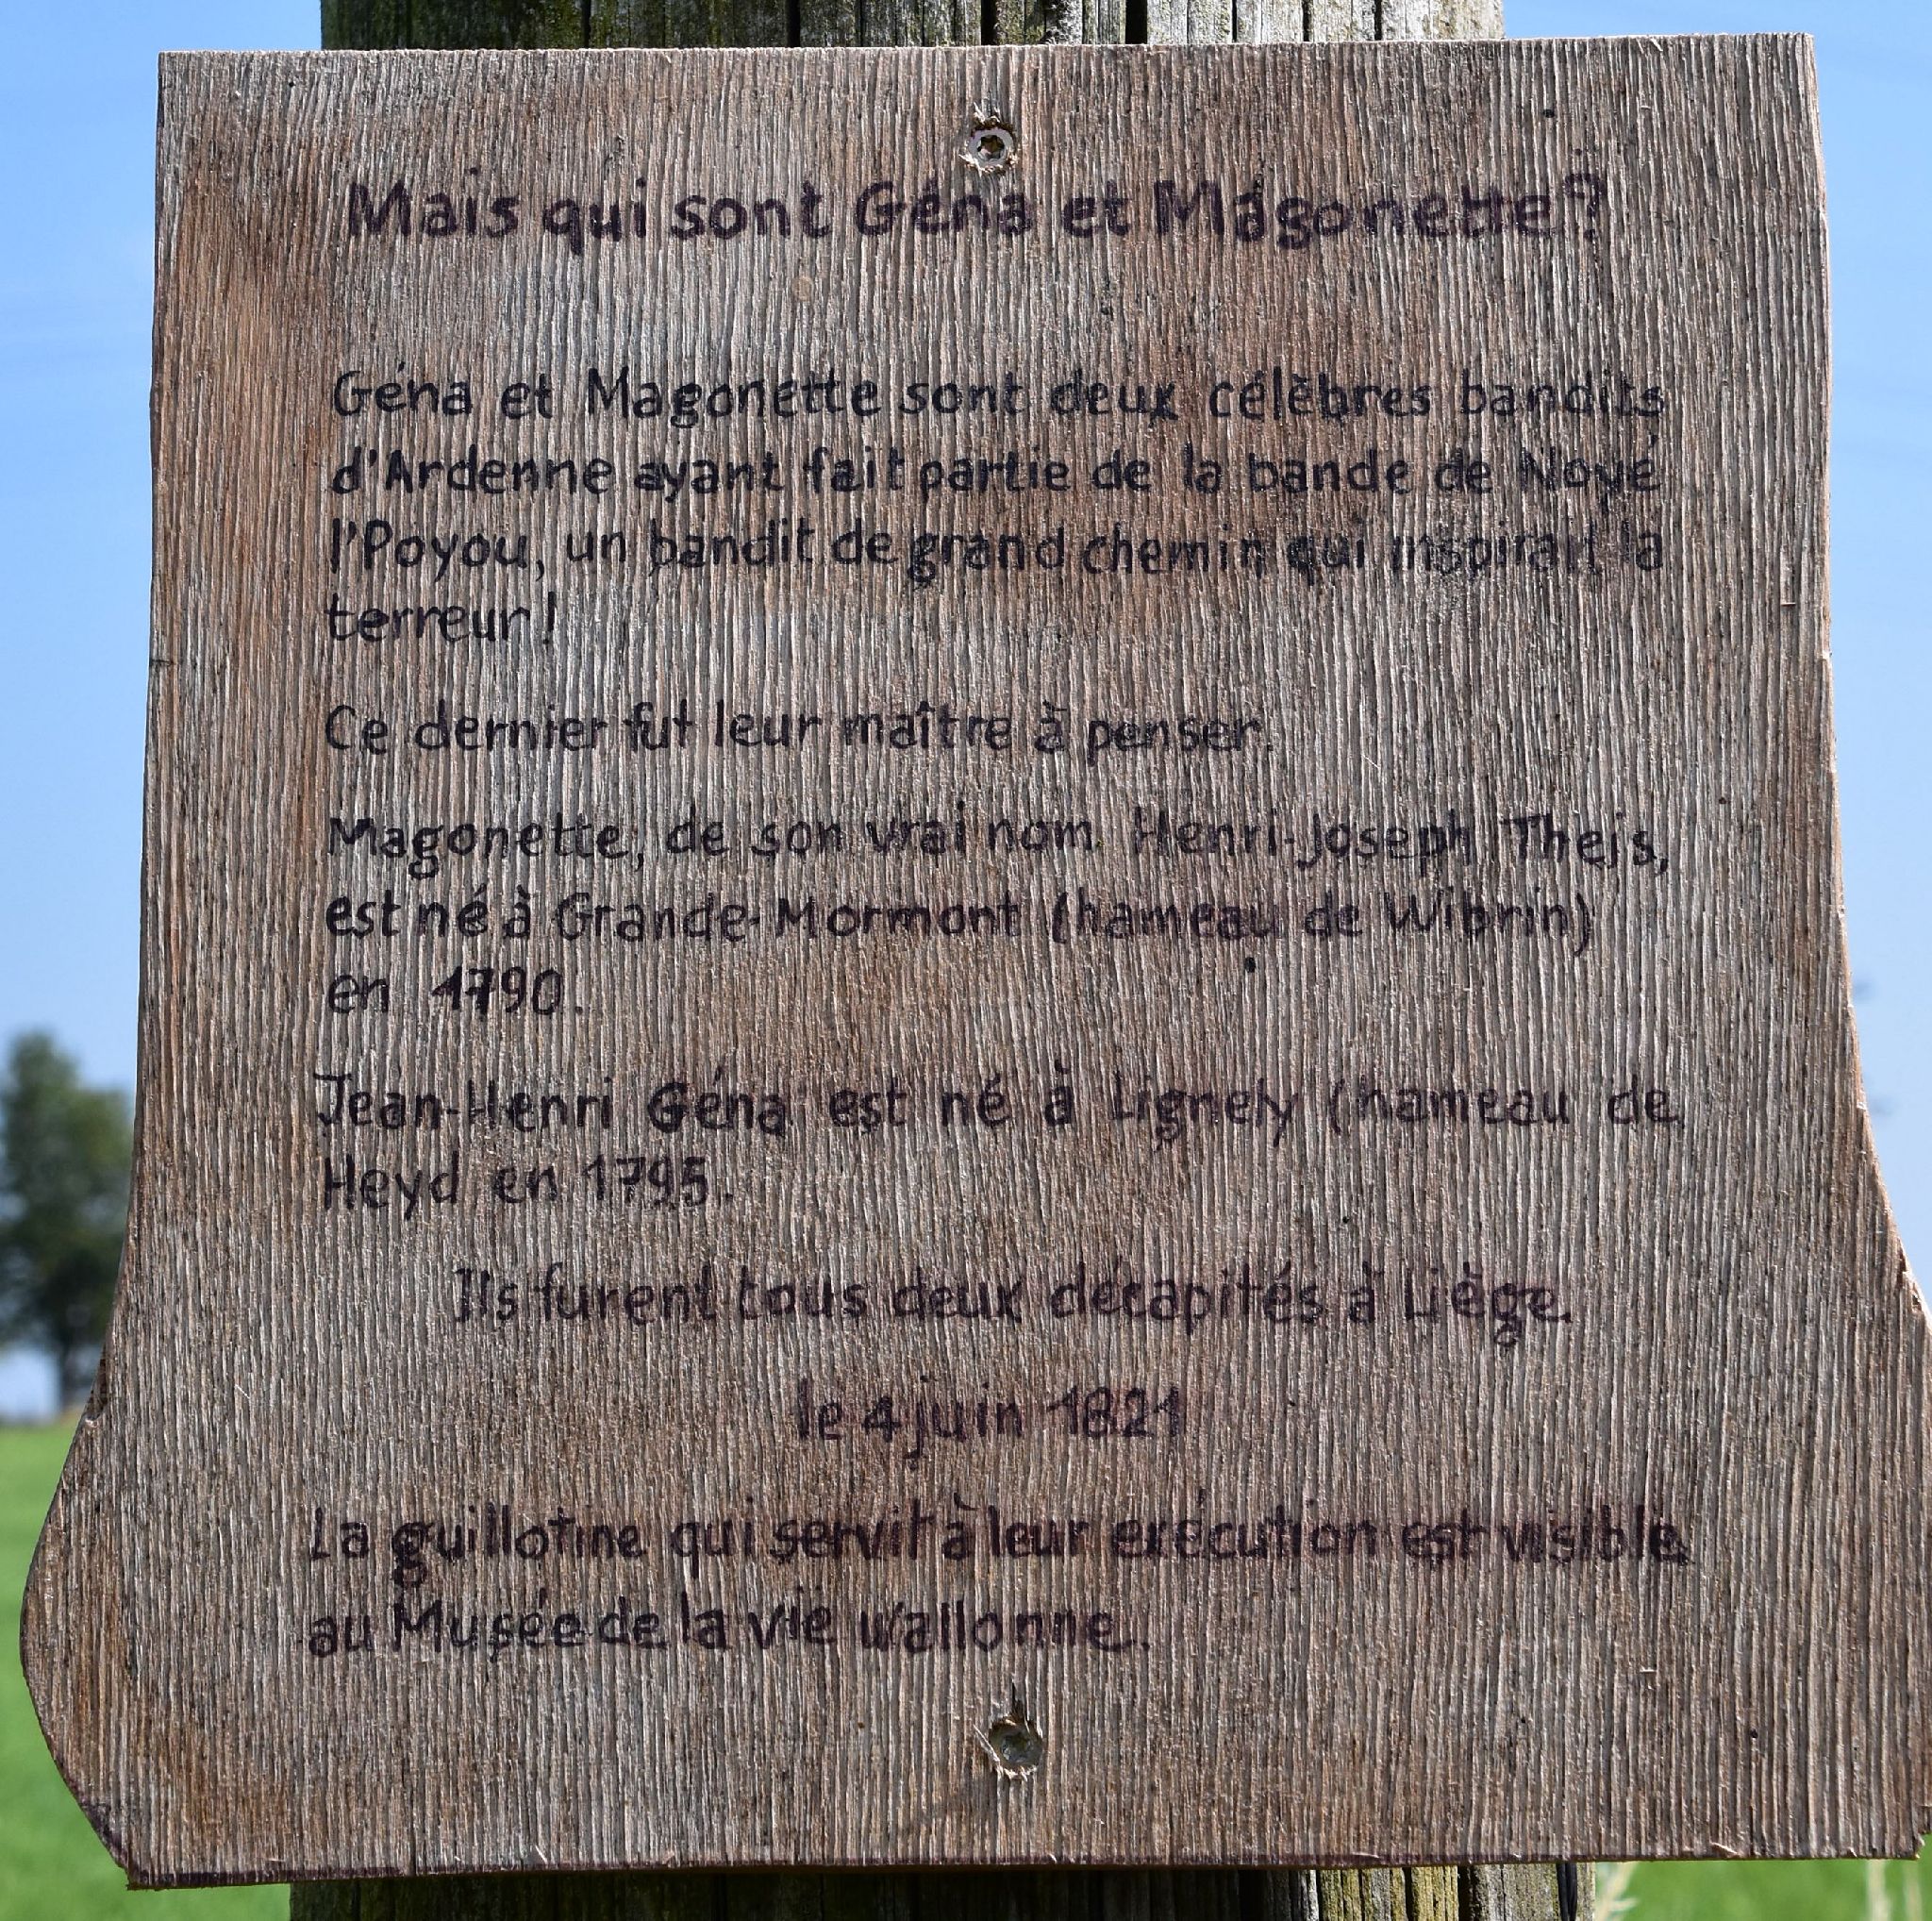 Mais qui sont Géna et Magonette?
Géna et Magonette sont deux célèbres bandits
d'Ardenne ayant fait partie de la bande de Noyé
l'Poyou, un bandit de grand chemin qui inspirait la
terreur!
Ce dernier fut leur maître à penser.
Magonette, de son vrai nom Henri-Joseph Theis,
est né à Grande-Mormont (hameau de Wibrin)
en 1790.
Jean-Henri Géna est né à Lignely (hameau de
Heyd en 1795.
Ils furent tous deux décapités à Liège.
le 4 juin 1821
La guillotine qui servit à leur exécution est visible
au Musée de la vie wallonne.